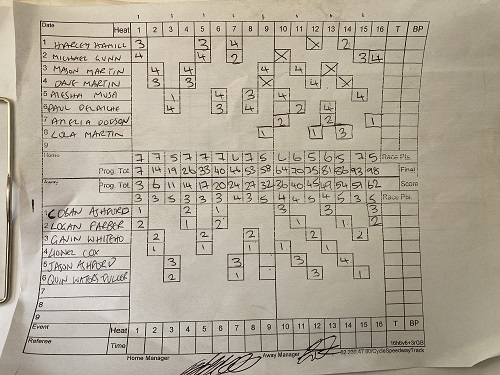 Date Heat 1 2 3 4 5 6 7 8 9 10 11 12 13 14 15 16 T BP
1 HARLEY HAMILL 3 3 4 X 2
2 MICHAEL GUNN 4 4 2 X 3 4
3 MASON MARTIN 4 4 4 4
4 DAVE MARTIN 3 3 X 4
5 ALESHA MUSA 1 4 3
6 PAUL DELAIHE 4 3 4 4
7 AMELIA DODSON 2 2 1
8 LOLA MARTIN 1 1 3
9
Home 7 7 5 7 7 7 6 7 5 6 6 5 6 5 7 5 Race Pts.
Prog. Tot. 7 14 19 26 33 40 46 53 58 64 70 75 81 86 93 98 Final
Away Prog. Tot. 3 6 11 14 17 20 24 27 32 36 40 45 49 54 51 62 Score
3 3 5 3 3 3 4 3 5 4 4 5 4 5 3 5 Race Pts.
1 LOGAN ASHFORD 1 2 1 3 3 3
2 LOGAN PARBER 2 1 2 1 1 2
3 GAVIN WHITEHO 2 2 2 2 2
4 LIONEL COX 1 1 1 1
5 JASON ASHFORD 3 3 3 4
6 QUIN WATERS FULLER 2 1 3 1
7
8
9
Event Heat 1 2 3 4 5 6 7 8 9 10 11 12 13 14 15 16 T BP
Referee Time
Home Manager Away Manager